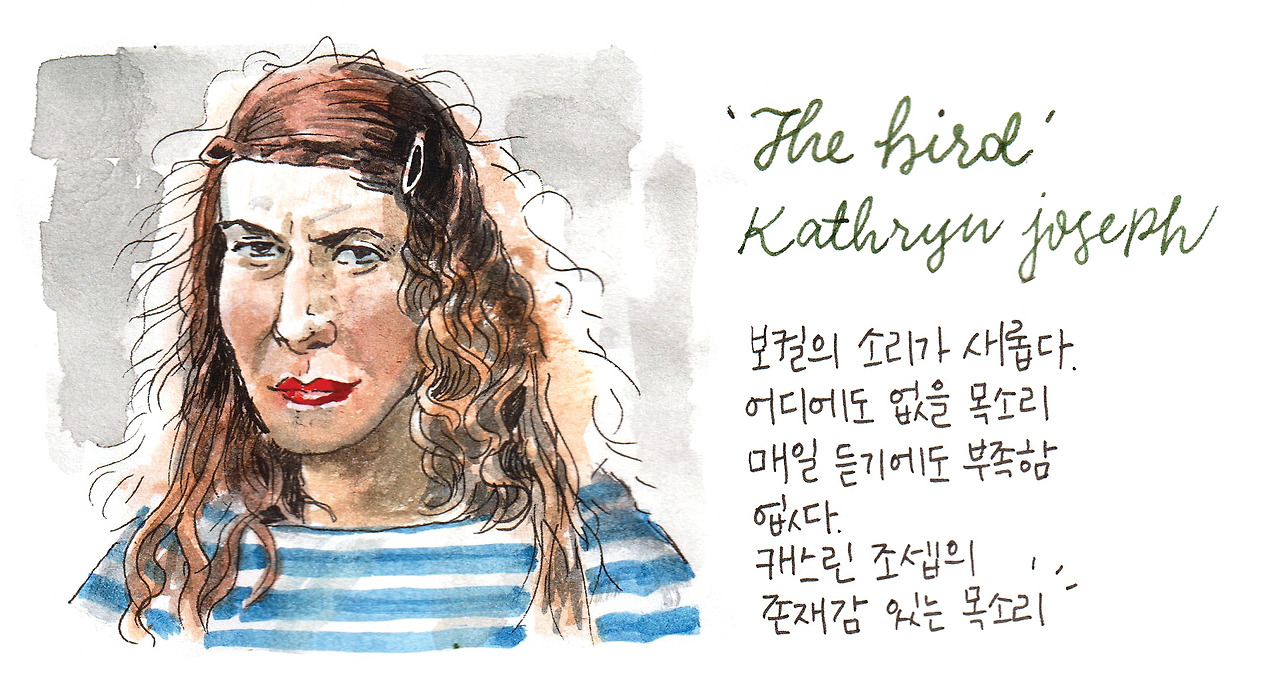 'The bird'
Kathryn joseph
보컬의 소리가 새롭다.
어디에도 없을 목소리
매일 듣기에도 부족함
없다.
캐스린 조셉의
존재감 있는 목소리